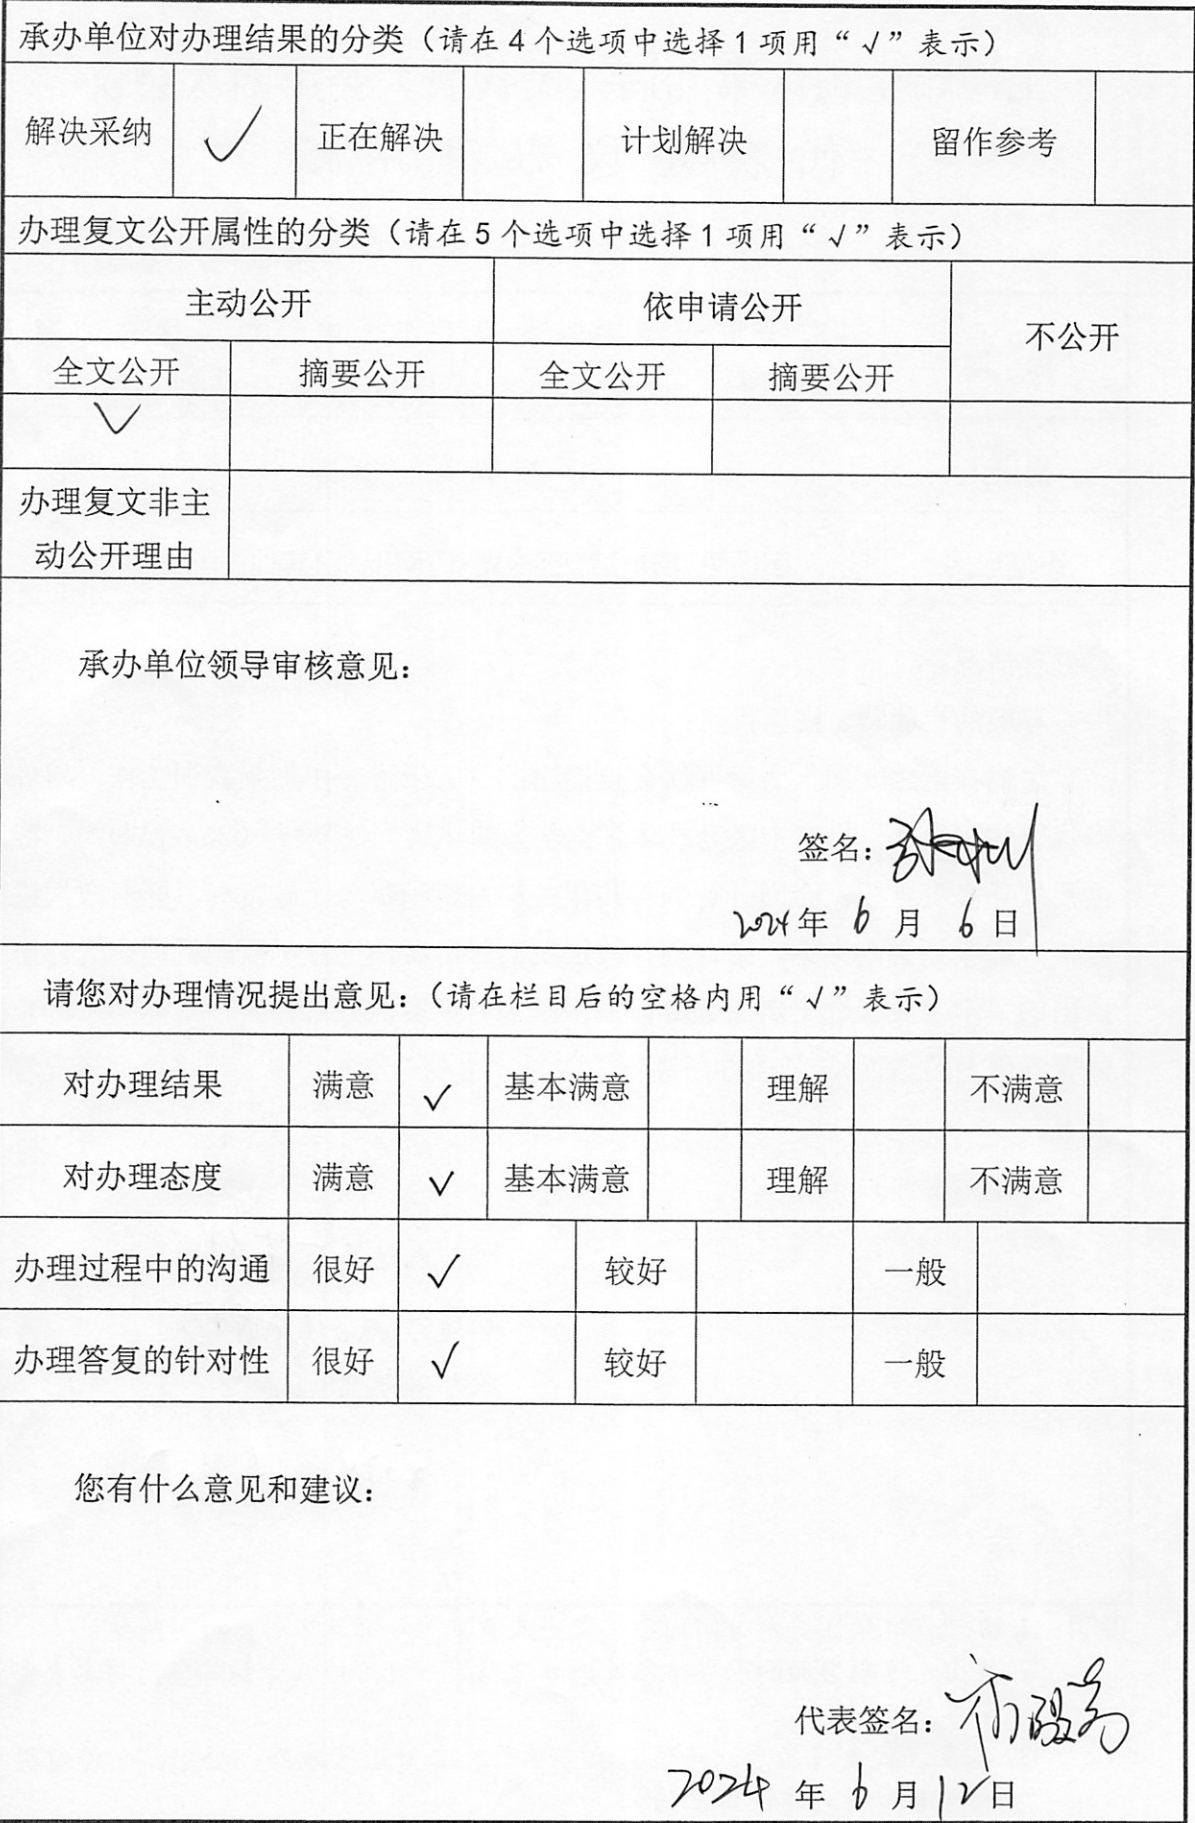 承办单位对办理结果的分类（请在4个选项中选择1项用“√”表示）
解决采纳 √ 正在解决 计划解决 留作参考
办理复文公开属性的分类（请在5个选项中选择1项用“√”表示）
主动公开 依申请公开 不公开
全文公开 摘要公开 全文公开 摘要公开
√
办理复文非主
动公开理由
承办单位领导审核意见：
签名：
2024年 6 月 6 日
请您对办理情况提出意见：（请在栏目后的空格内用“√”表示）
对办理结果 满意 √ 基本满意 理解 不满意
对办理态度 满意 √ 基本满意 理解 不满意
办理过程中的沟通 很好 √ 较好 一般
办理答复的针对性 很好 √ 较好 一般
您有什么意见和建议：
代表签名：
2024 年 6 月 12 日